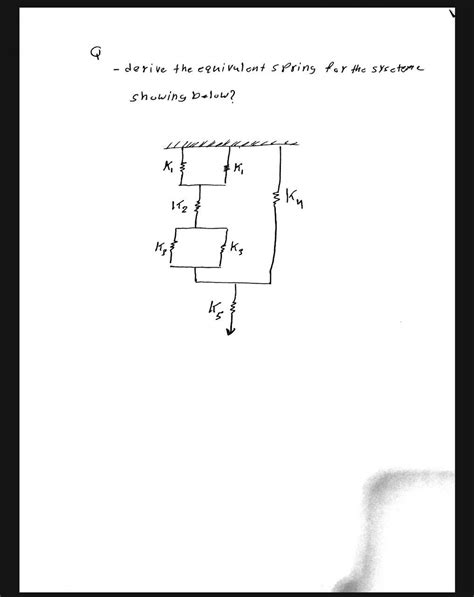 Q
- derive the equivalent spring for the systeme
showing below?
K₁ K₁
K₂ K₄
K₃ K₃
K₅